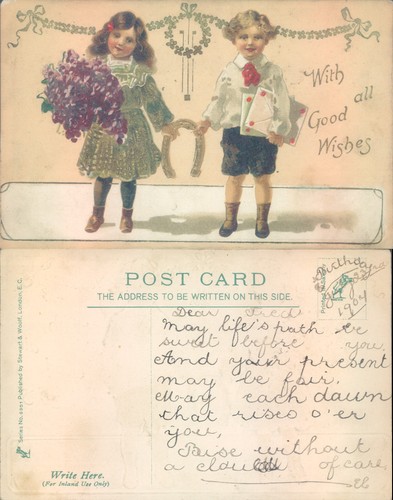 With
all
Good
Wishes
POST CARD
THE ADDRESS TO BE WRITTEN ON THIS SIDE.
Birthday
1904
Dear Fred
May life's path be
sweet before you
And your present
may be fair,
May each dawn
that rises o'er
you,
Raise without
a cloud of care,
Write Here.
(For Inland Use Only)
Published by Stewart & Woolf, London, E.C.